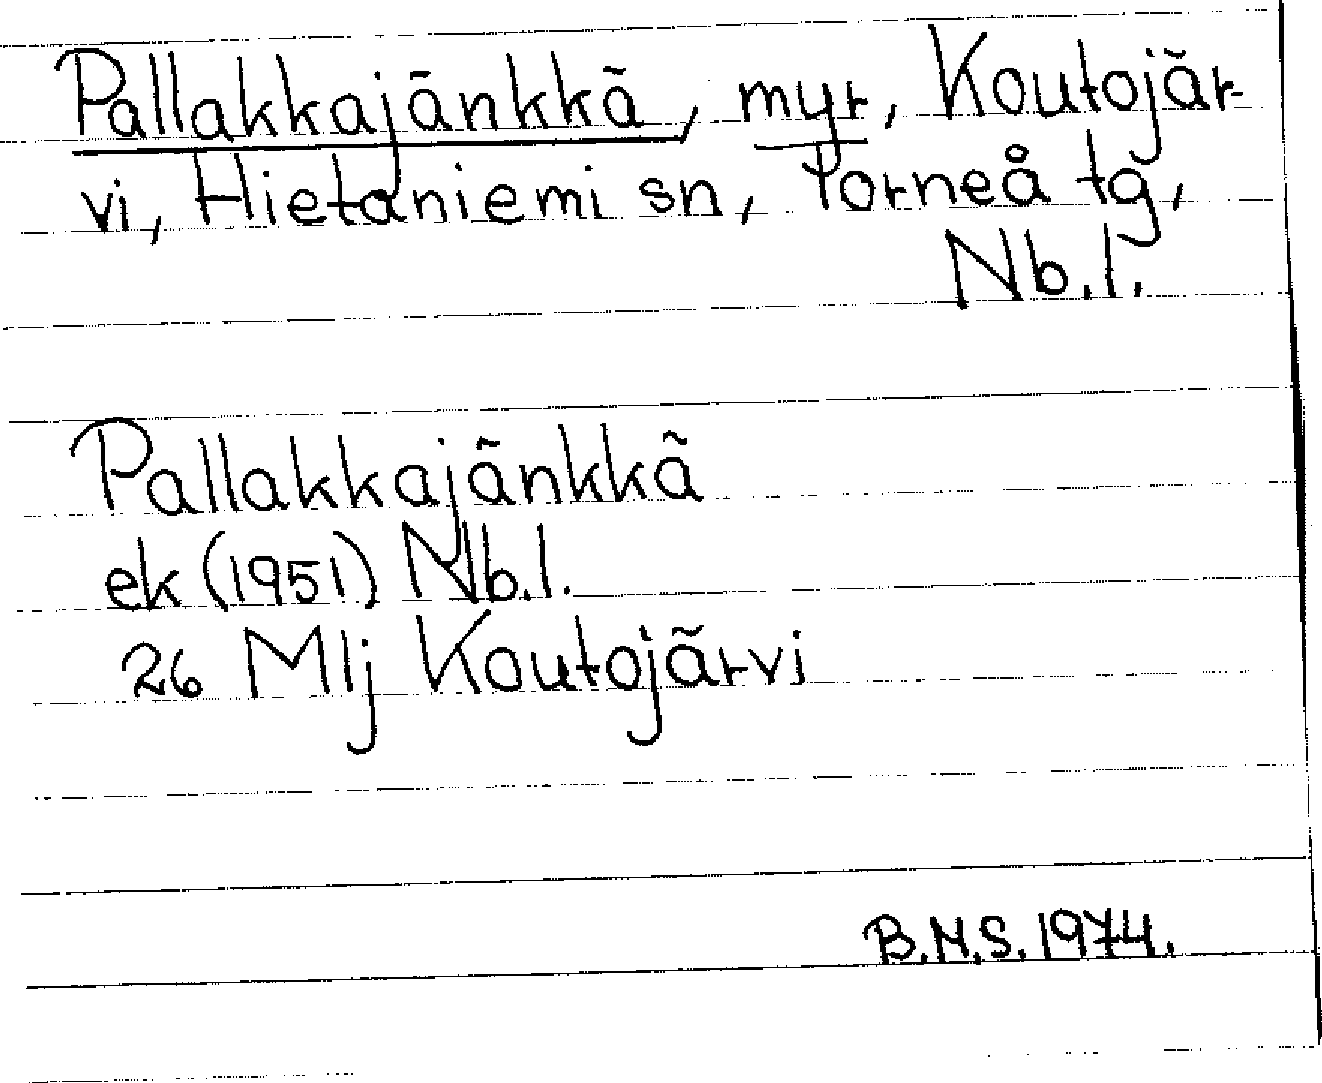 Pallakkajänkkä, myr, Koutojär-
vi, Hietaniemi sn, Torneå tg,
Nb.l.
Pallakkajänkkä
ek (1951) Nb.l.
26 Mlj Koutojärvi
B.N.S. 1974.